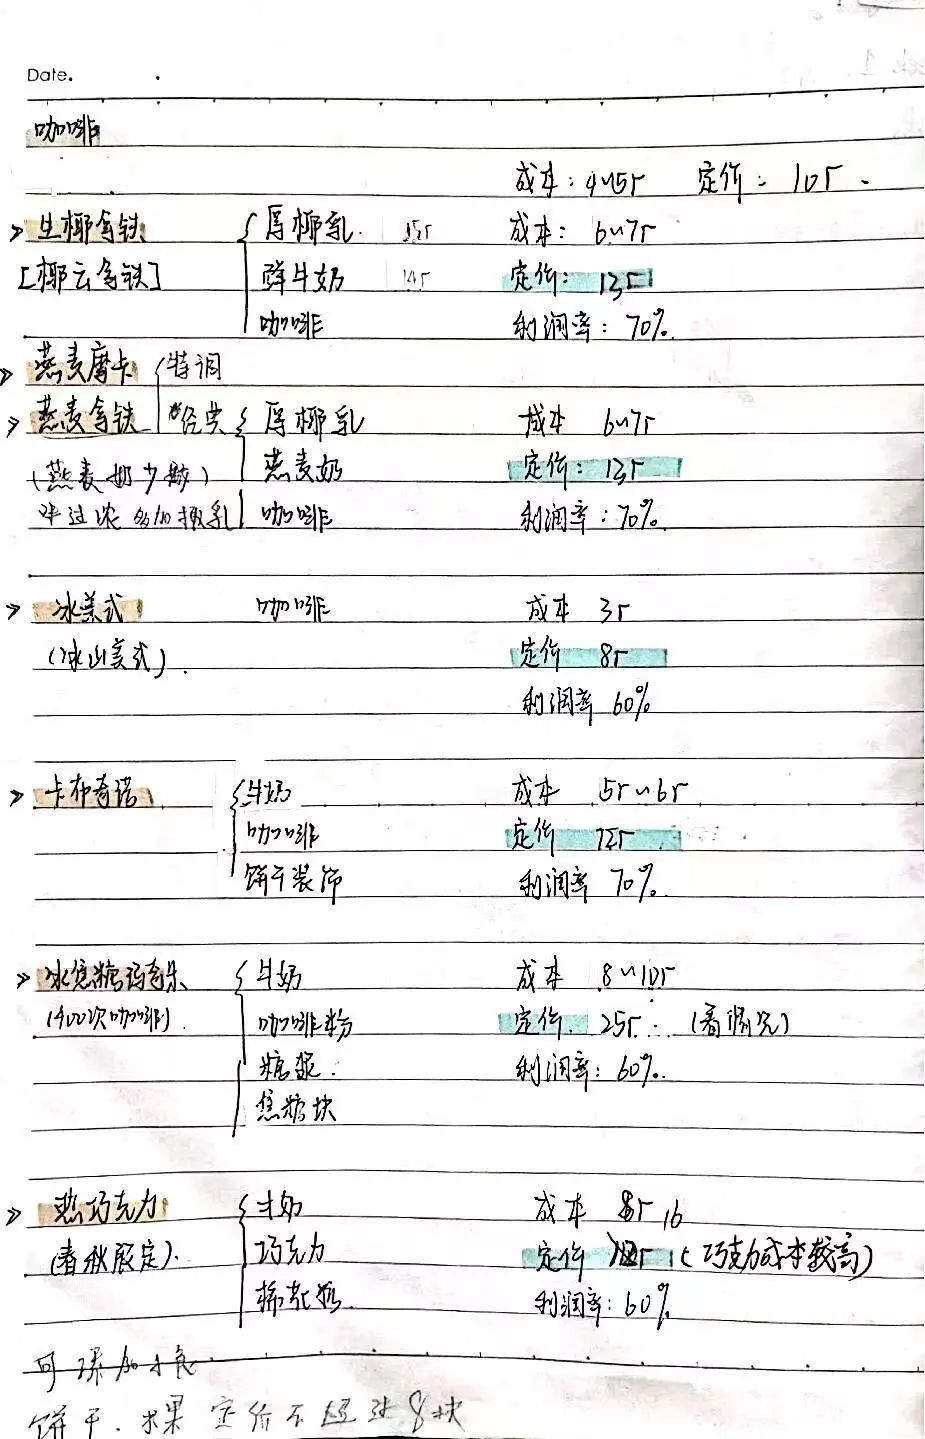 Date.
咖啡
成本：4~5r 定价：10r.
» 生椰拿铁 { 厚椰乳. 15r 成本：6~7r
[椰云拿铁] 鲜牛奶 14r 定价：13r
咖啡 利润率：70%.
» 燕麦摩卡 { 特调
» 燕麦拿铁 经典 { 厚椰乳 成本 6~7r
(燕麦奶少放) 燕麦奶 定价：13r
咖啡 利润率：70%.
» 冰美式 咖啡 成本 3r
(冰山美式). 定价 8r
利润率 60%
» 卡布奇诺 { 牛奶 成本 5r~6r
咖啡 定价 12r
饼干装饰 利润率 70%.
» 冰焦糖玛奇朵 { 牛奶 成本 8~10r
(400次咖啡) 咖啡粉 定价. 25r (看情况)
糖浆. 利润率：60%.
焦糖块
» 热巧克力 { 牛奶 成本 8r 16
(春秋限定). 巧克力 定价 (巧克力成本较高)
棉花糖. 利润率：60%
可添加小食
饼干.水果 定价不超过8块